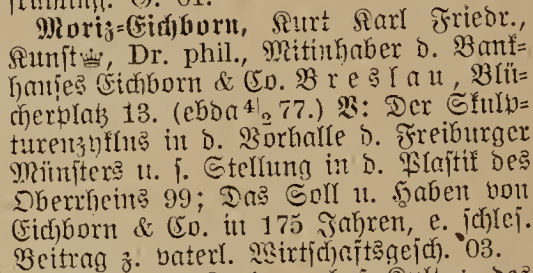 Moriz=Eichborn, Kurt Karl Friedr.,
Kunst♕, Dr. phil., Mitinhaber d. Bank=
hauses Eichborn & Co. Breslau, Blü=
cherplatz 13. (ebda 4/2 77.) V: Der Skulp=
turenzyklus in d. Vorhalle d. Freiburger
Münsters u. s. Stellung in d. Plastik des
Oberrheins 99; Das Soll u. Haben von
Eichborn & Co. in 175 Jahren, e. schles.
Beitrag z. vaterl. Wirtschaftsgesch. 03.